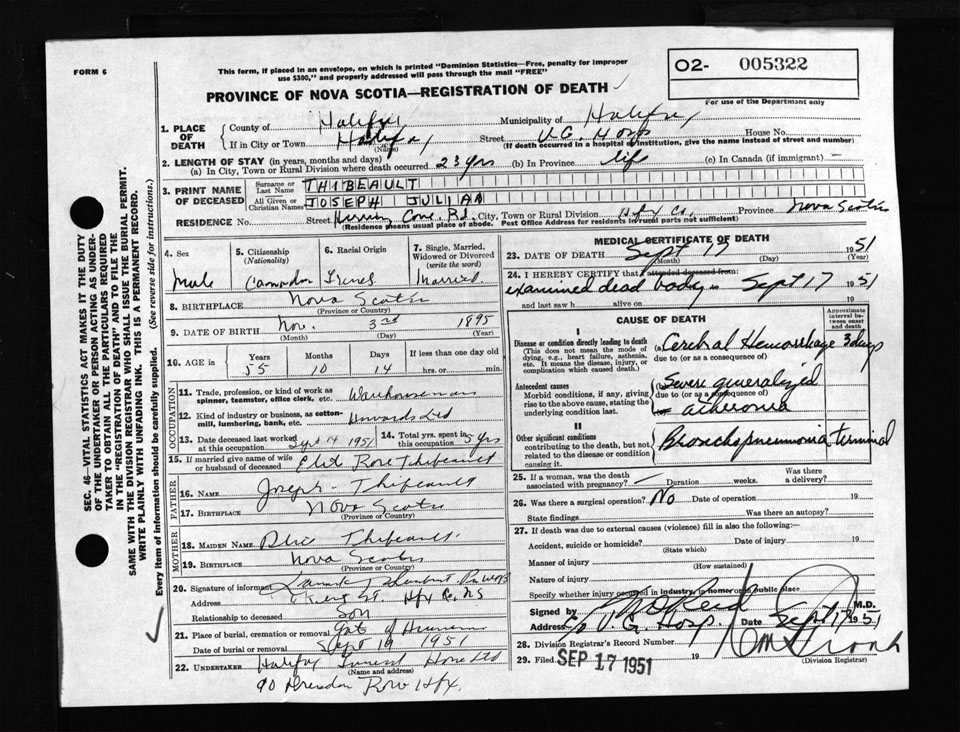 FORM 6
This form, if placed in an envelope, on which is printed "Dominion Statistics—Free, penalty for improper
use $300," and properly addressed will pass through the mail "FREE"
O2- 005322
For use of the Department only
PROVINCE OF NOVA SCOTIA—REGISTRATION OF DEATH
1. PLACE OF DEATH
County of Halifax Municipality of Halifax
If in City or Town Halifax Street V.G. Hosp House No.
(Name) (If death occurred in a hospital or institution, give the name instead of street and number)
2. LENGTH OF STAY (in years, months and days)
(a) In City, Town or Rural Division where death occurred 23 yrs (b) In Province life (c) In Canada (if immigrant) —
3. PRINT NAME OF DECEASED
Surname or Last Name THIBEAULT
All Given or Christian Names JOSEPH JULIAN
RESIDENCE No. Street Herring Cove Rd. City, Town or Rural Division Hfx Co. Province Nova Scotia
(Residence means usual place of abode. Post Office Address for residents in rural parts not sufficient)
4. Sex Male
5. Citizenship (Nationality) Canadian
6. Racial Origin French
7. Single, Married, Widowed or Divorced (write the word) Married
8. BIRTHPLACE Nova Scotia
(Province or Country)
9. DATE OF BIRTH Nov. 3rd 1895
(Month) (Day) (Year)
10. AGE in Years Months Days If less than one day old
55 10 14 hrs. or min.
OCCUPATION
11. Trade, profession, or kind of work as spinner, teamster, office clerk, etc. Warehouseman
12. Kind of industry or business, as cotton-mill, lumbering, bank, etc. Ltd
13. Date deceased last worked at this occupation Sept 14 1951
14. Total yrs. spent in this occupation 5 yrs
15. If married give name of wife or husband of deceased Rose Thibeault
FATHER
16. NAME Joseph Thibeault
17. BIRTHPLACE Nova Scotia
(Province or Country)
MOTHER
18. MAIDEN NAME Thibeault
19. BIRTHPLACE Nova Scotia
(Province or Country)
20. Signature of informant
Address St. Hfx Co. NS
Relationship to deceased Son
21. Place of burial, cremation or removal Gate of Heaven
Date of burial or removal Sept 19 1951
22. UNDERTAKER Halifax Funeral Home Ltd
(Name and address)
90 Dresden Row Hfx.
MEDICAL CERTIFICATE OF DEATH
23. DATE OF DEATH Sept 17 1951
(Month) (Day) (Year)
24. I HEREBY CERTIFY that I attended deceased from:
examined dead body Sept 17 1951
and last saw h alive on 19
CAUSE OF DEATH
Approximate interval between onset and death
I
Disease or condition directly leading to death
(This does not mean the mode of dying, e.g., heart failure, asthenia, etc. It means the disease, injury, or complication which caused death.)
(a) Cerebral Hemorrhage 3 days
due to (or as a consequence of)
Antecedent causes
Morbid conditions, if any, giving rise to the above cause, stating the underlying condition last.
(b) Severe generalized
due to (or as a consequence of)
(c)
II
Other significant conditions
contributing to the death, but not related to the disease or condition causing it.
Bronchopneumonia terminal
25. If a woman, was the death associated with pregnancy? — Duration weeks. Was there a delivery?
26. Was there a surgical operation? No Date of operation 19
State findings Was there an autopsy?
27. If death was due to external causes (violence) fill in also the following:—
Accident, suicide or homicide? Date of injury 19
(State which)
Manner of injury
(How sustained)
Nature of injury
Specify whether injury occurred in industry, in home or in public place
Signed by M.D.
Address V.G. Hosp. Date Sept 17 1951
28. Division Registrar's Record Number
29. Filed SEP 17 1951 19
(Division Registrar)
SEC. 46- VITAL STATISTICS ACT MAKES IT THE DUTY
OF THE UNDERTAKER OR PERSON ACTING AS UNDER-
TAKER TO OBTAIN ALL THE PARTICULARS REQUIRED
IN THE "REGISTRATION OF DEATH" AND TO FILE THE
SAME WITH THE DIVISION REGISTRAR WHO SHALL ISSUE THE BURIAL PERMIT.
WRITE PLAINLY WITH UNFADING INK. THIS IS A PERMANENT RECORD.
Every item of information should be carefully supplied. (See reverse side for instructions.)